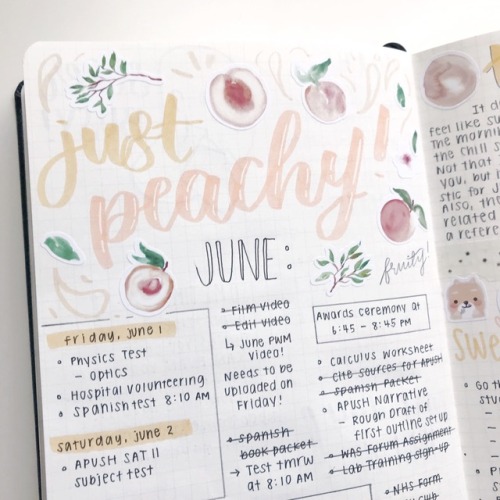 just
peachy!
JUNE:
fruity!
friday, june 1
Physics Test
- optics
Hospital volunteering
spanish test 8:10 AM
saturday, june 2
APUSH SAT II
subject test
Film video
Edit video
↳ June PWM
video!
Needs to be
uploaded on
Friday!
spanish
book packet
→ Test tmrw
at 8:10 AM
Awards ceremony at
6:45 - 8:45 PM
calculus worksheet
cite sources for Apush
spanish Packet
APUSH Narrative
- Rough Draft of
first outline setup
WAS Forum Assignment
Lab Training sign-up
NHS Form
It d
feel like su
The mornin
the chill s
Not that
you, but i
stic for
Also, the
related
a refere
swe
Go t
stu